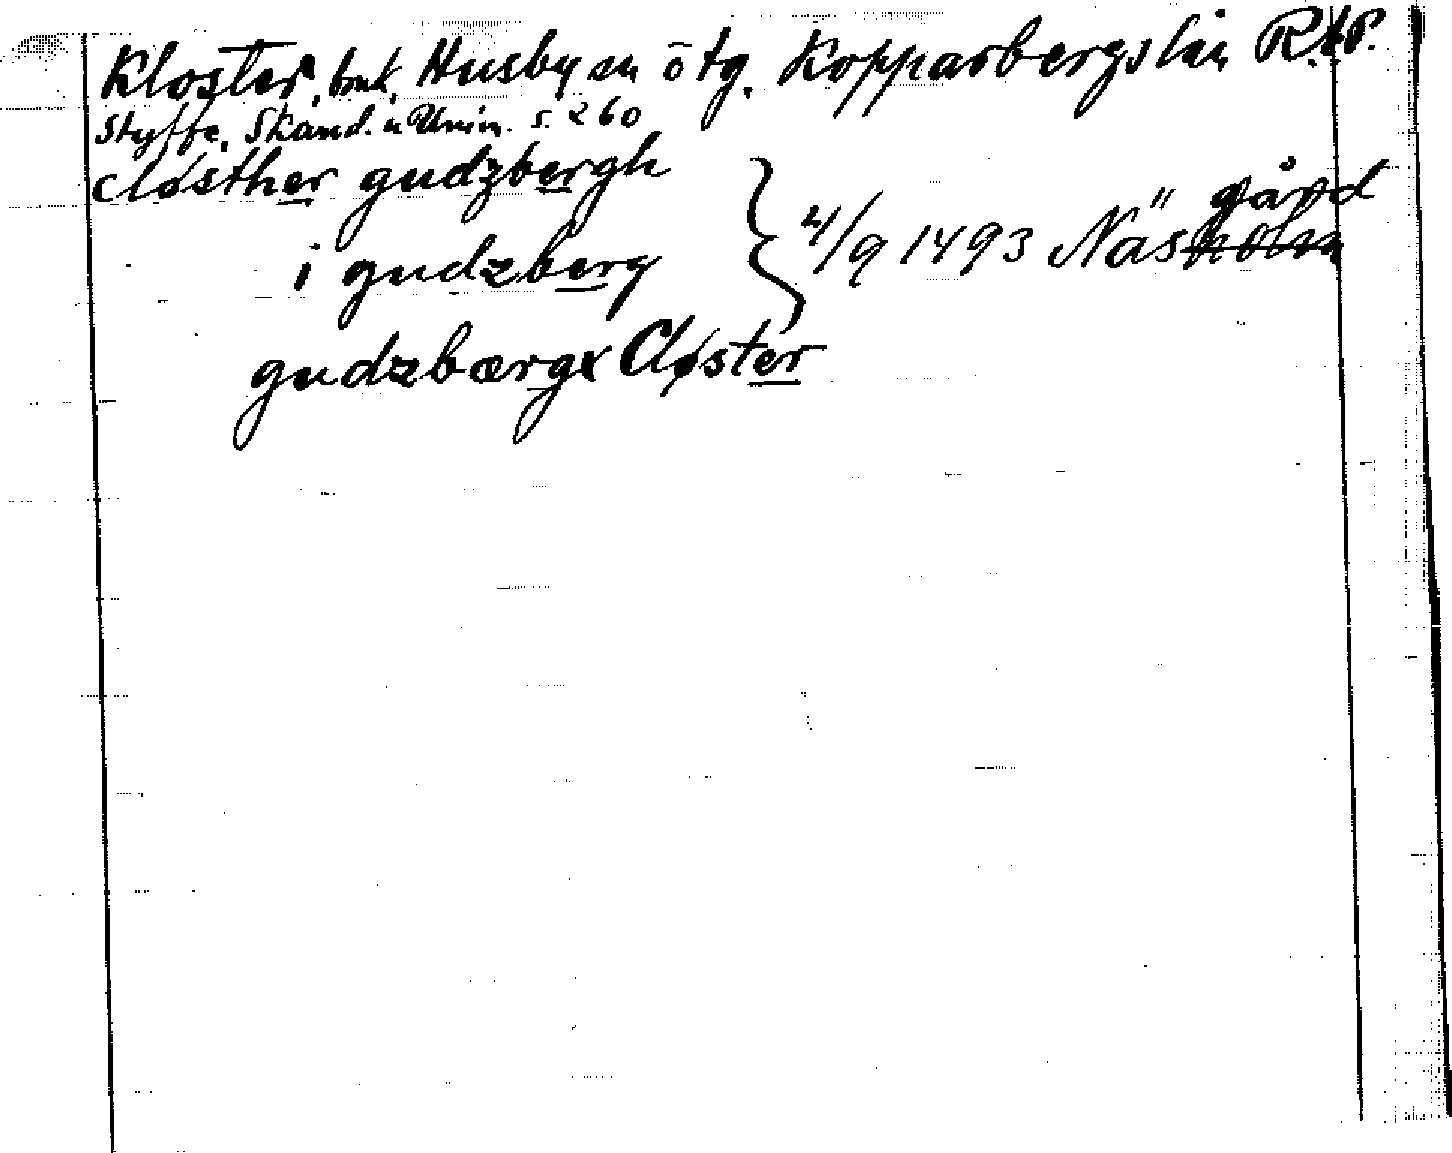 Kloster, bruk, Husby sn ötg. Kopparbergs län R.A.P.
Styffe, Skand. u Unin. s. 260
closther gudzbergh
i gudzberg
gudzbærgx Closter
4/9 1493 Näsholm gård